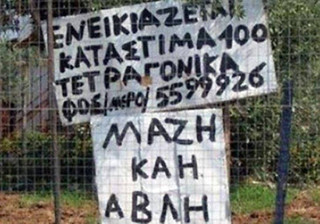 ΕΝΕΙΚΙΑΖΕΤΑΙ
ΚΑΤΑΣΤΙΜΑ 100
ΤΕΤΡΑΓΟΝΙΚΑ
ΦΟΣ/ΜΕΡΟ/ 5599926
ΜΑΖΗ
ΚΑΗ
ΑΒΛΗ